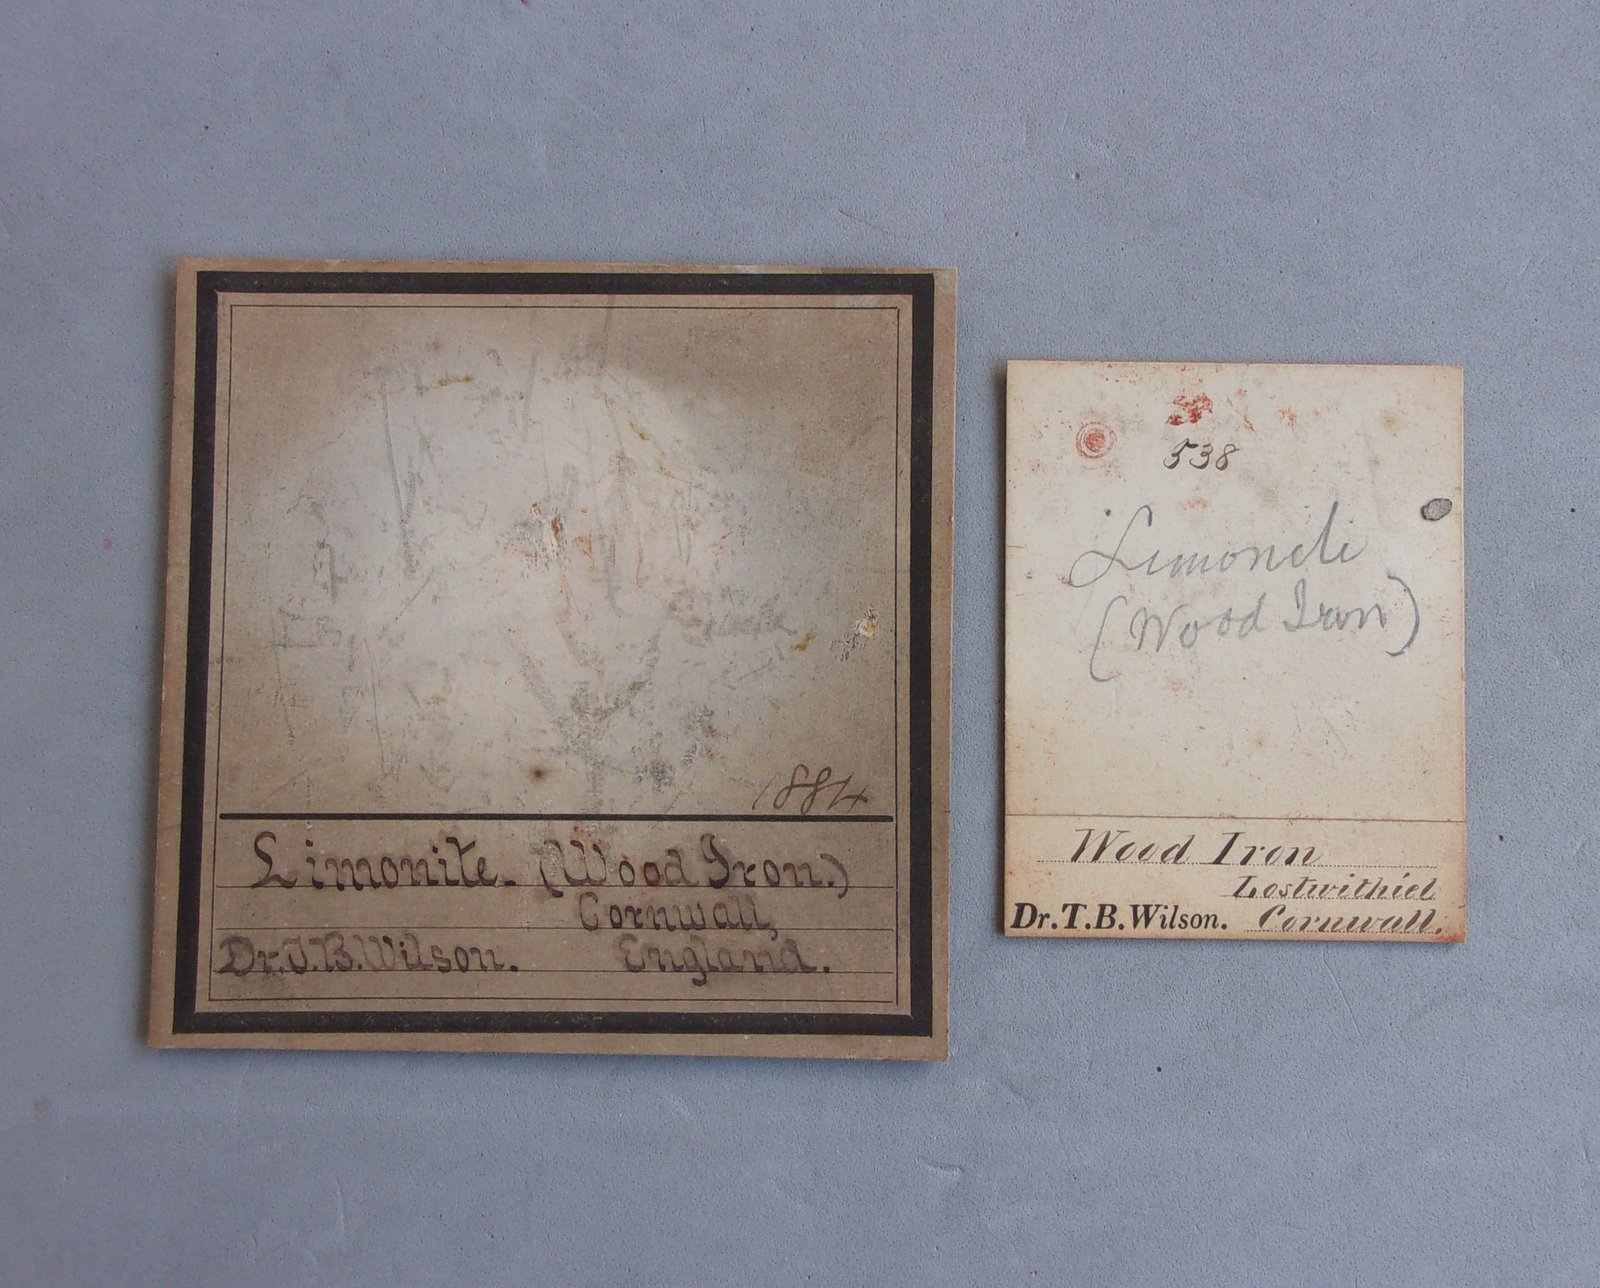 1884
Limonite. (Wood Iron.)
Cornwall,
Dr. T. B. Wilson. England.
538
Limonite
(Wood Iron)
Wood Iron
Lostwithiel
Dr. T. B. Wilson. Cornwall.